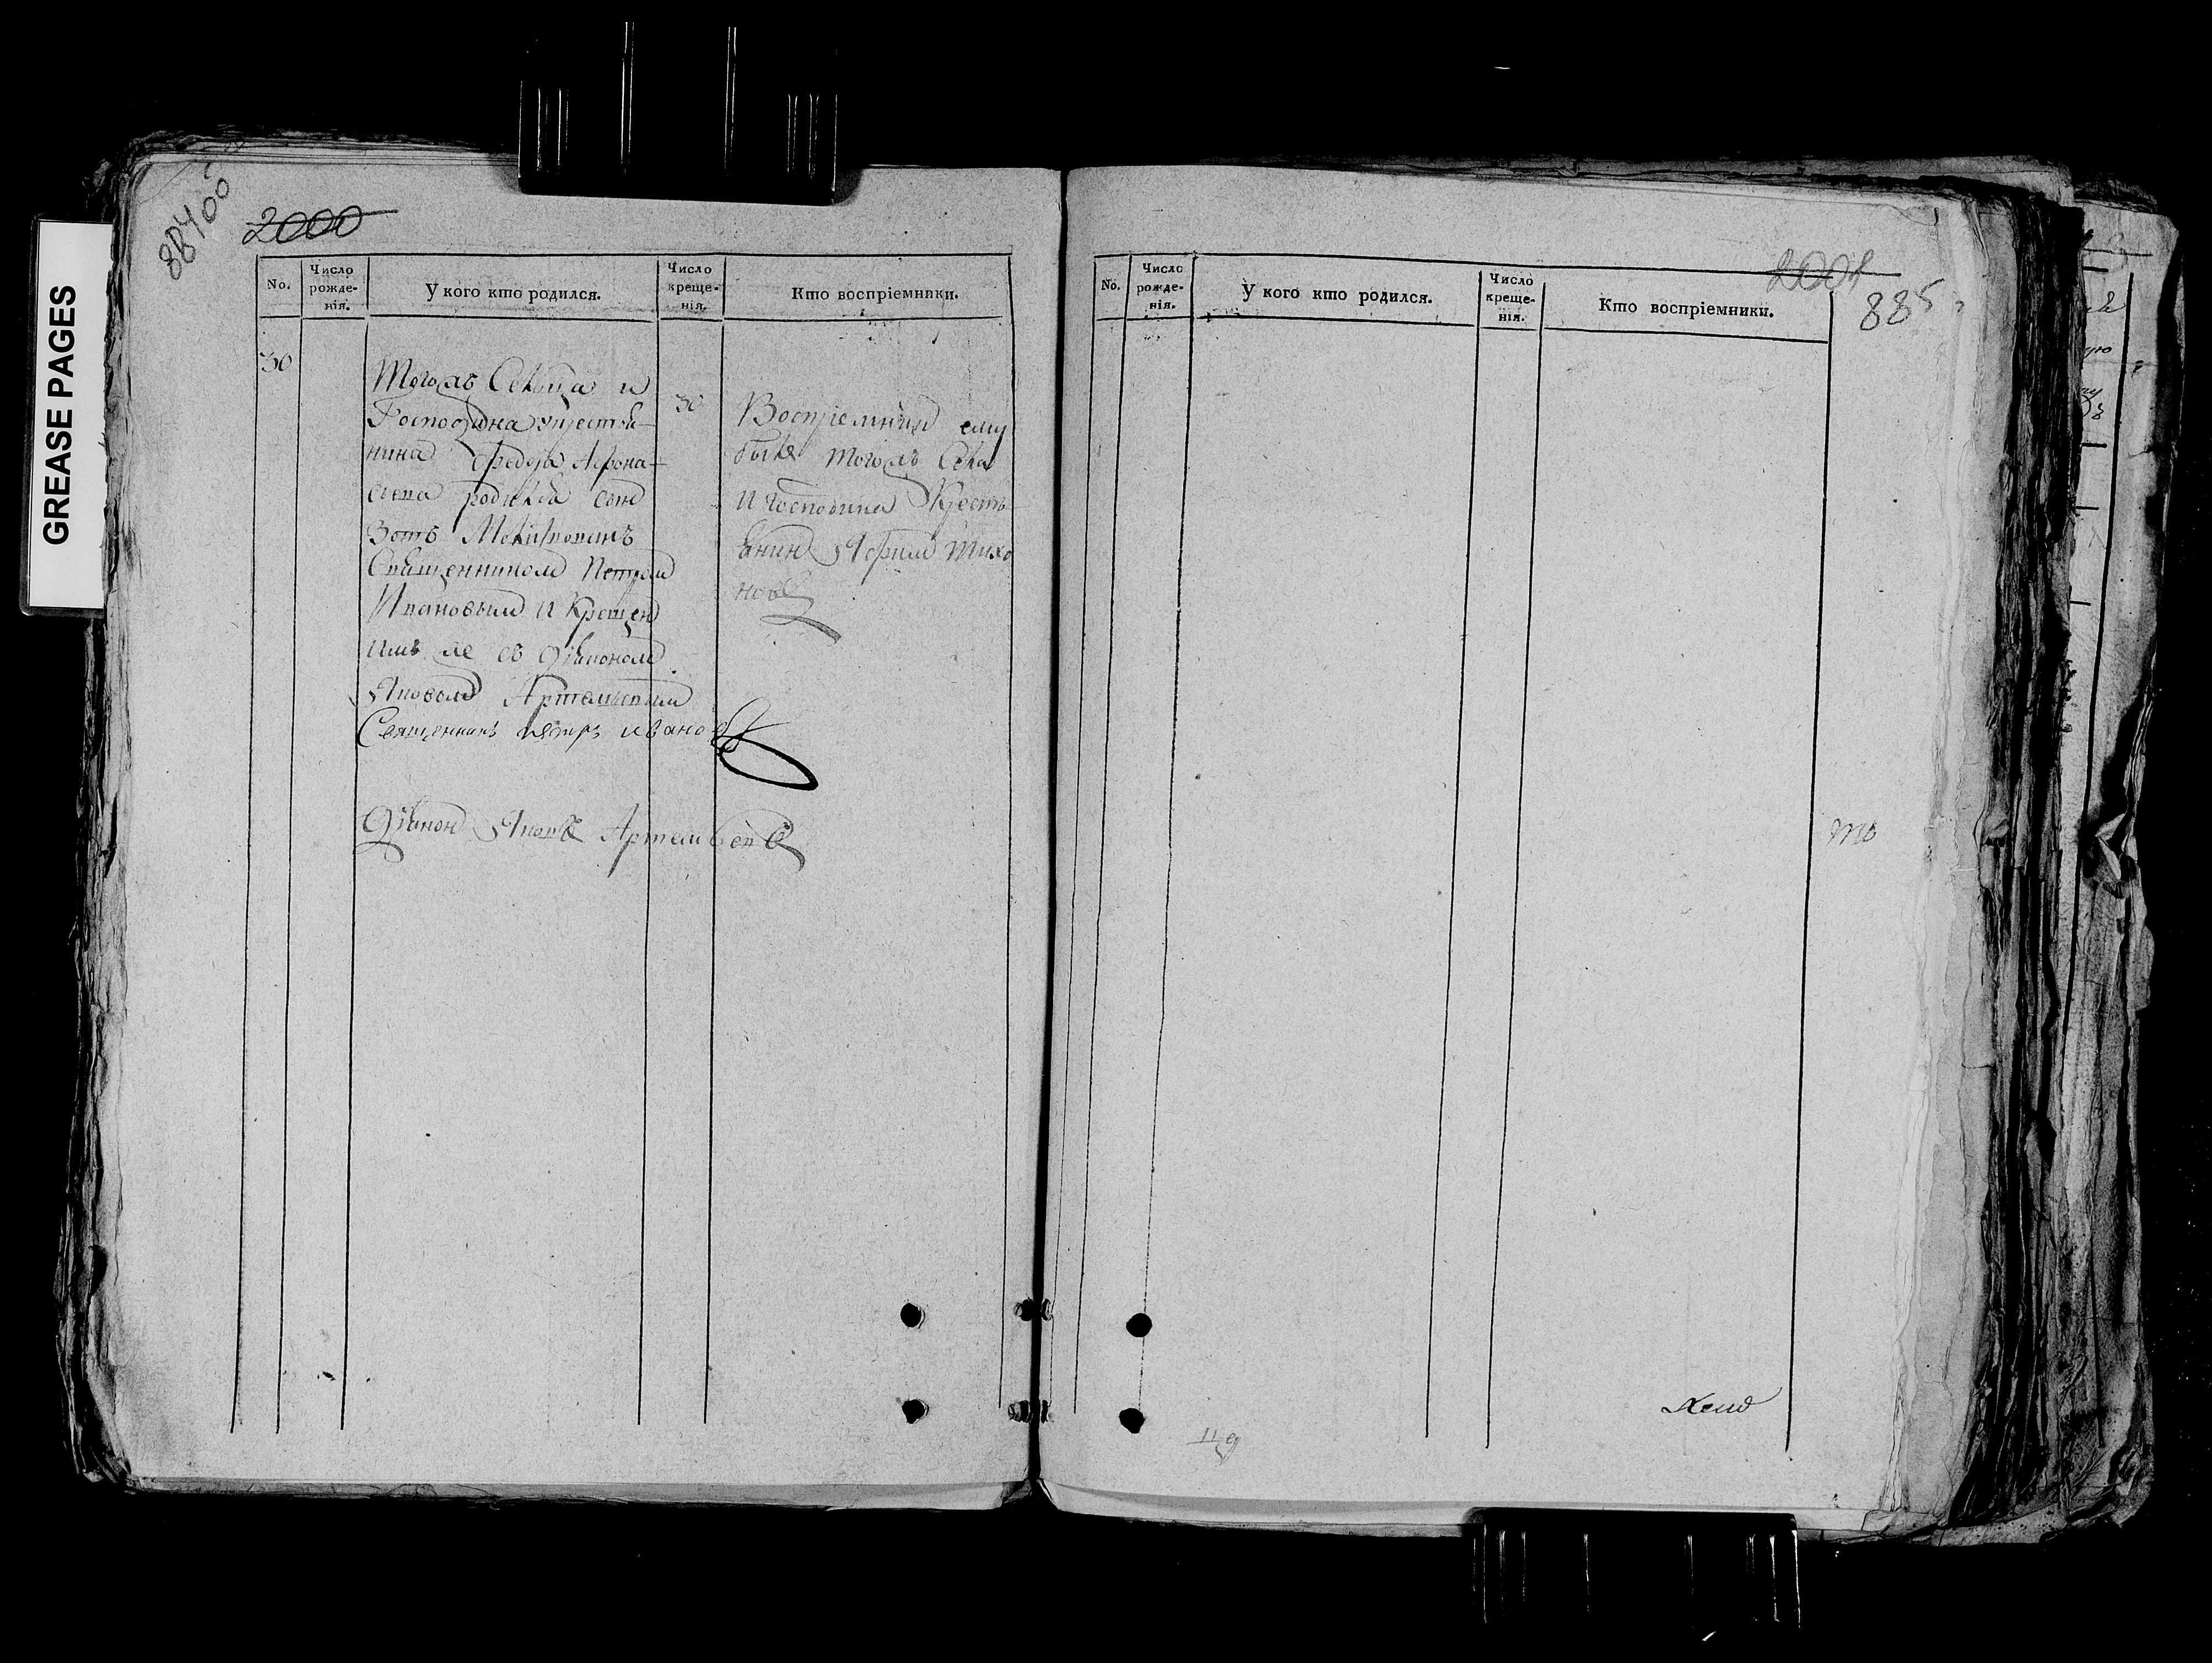 GREASE PAGES
884 об
2000
No.
Число рожде-нія.
У кого кто родился.
Число креще-нія.
Кто воспріемники.
30
Тогожъ Сельца и
Господина крестья-
нина Федора Афона-
сьева родился сынъ
Зотъ Молитвованъ
Священникомъ Петром
Ивановым и крещен
имъ же съ діаконом
Яковом Артемьевым
Священникъ петръ иванов
Діакон Яковъ Артемьевъ
30
Воспріемник ему
былъ тогожъ Села
и господина Кресть
янин Ефим Тихо
новъ
2001
885
No.
Число рожде-нія.
У кого кто родился.
Число креще-нія.
Кто воспріемники.
119